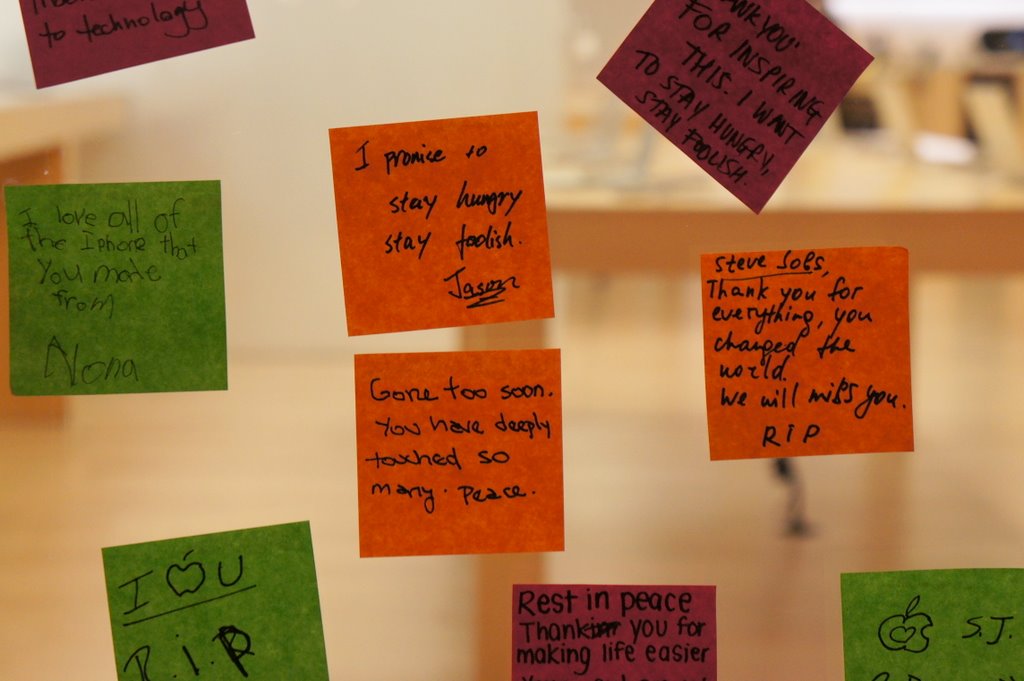 to technology
YOU
FOR INSPIRING
THIS. I WANT
TO STAY HUNGRY,
STAY FOOLISH.
I promise to
stay hungry
stay foolish.
Jason
I love all of
the Iphone that
You made
from
Nona
Steve Jobs,
Thank you for
everything, you
changed the
world.
We will miss you.
RIP
Gone too soon.
You have deeply
touched so
many. Peace.
I U
R.I.P
Rest in peace
Thank you for
making life easier
S.J.